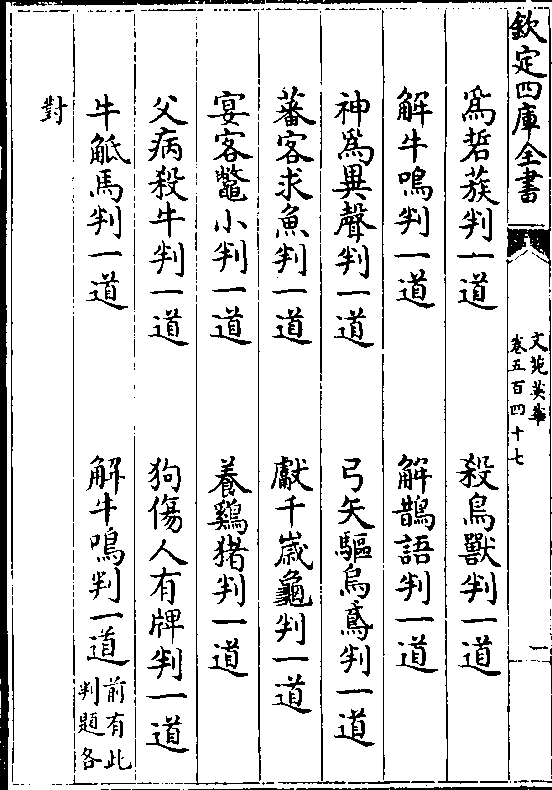 欽定四庫全書
文苑英華
卷五百四十七
一
爲硩蔟判一道 殺鳥獸判一道
解牛鳴判一道 解鵲語判一道
神爲異聲判一道 弓矢驅烏鳶判一道
蕃客求魚判一道 獻千歲龜判一道
宴客鼈小判一道 養鷄猪判一道
父病殺牛判一道 狗傷人有牌判一道
牛觝馬判一道 解牛鳴判一道 前有此
判題各
對